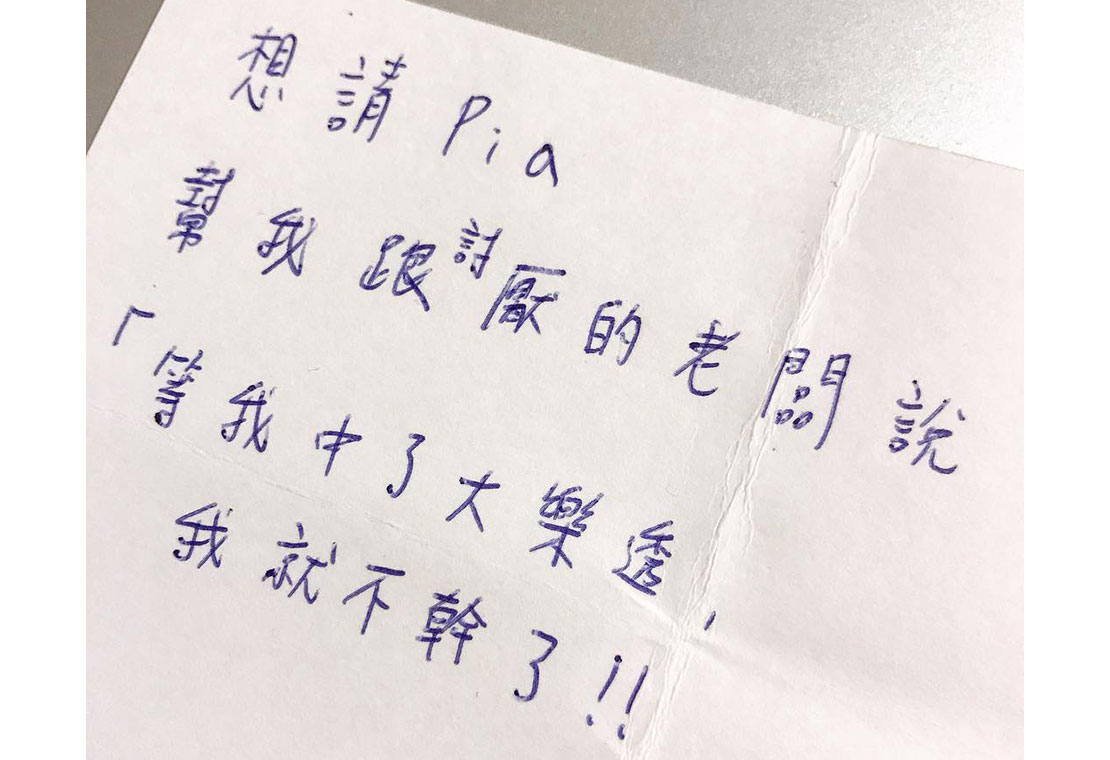 想請Pia
幫我跟討厭的老闆說
「等我中了大樂透,
我就不幹了!!